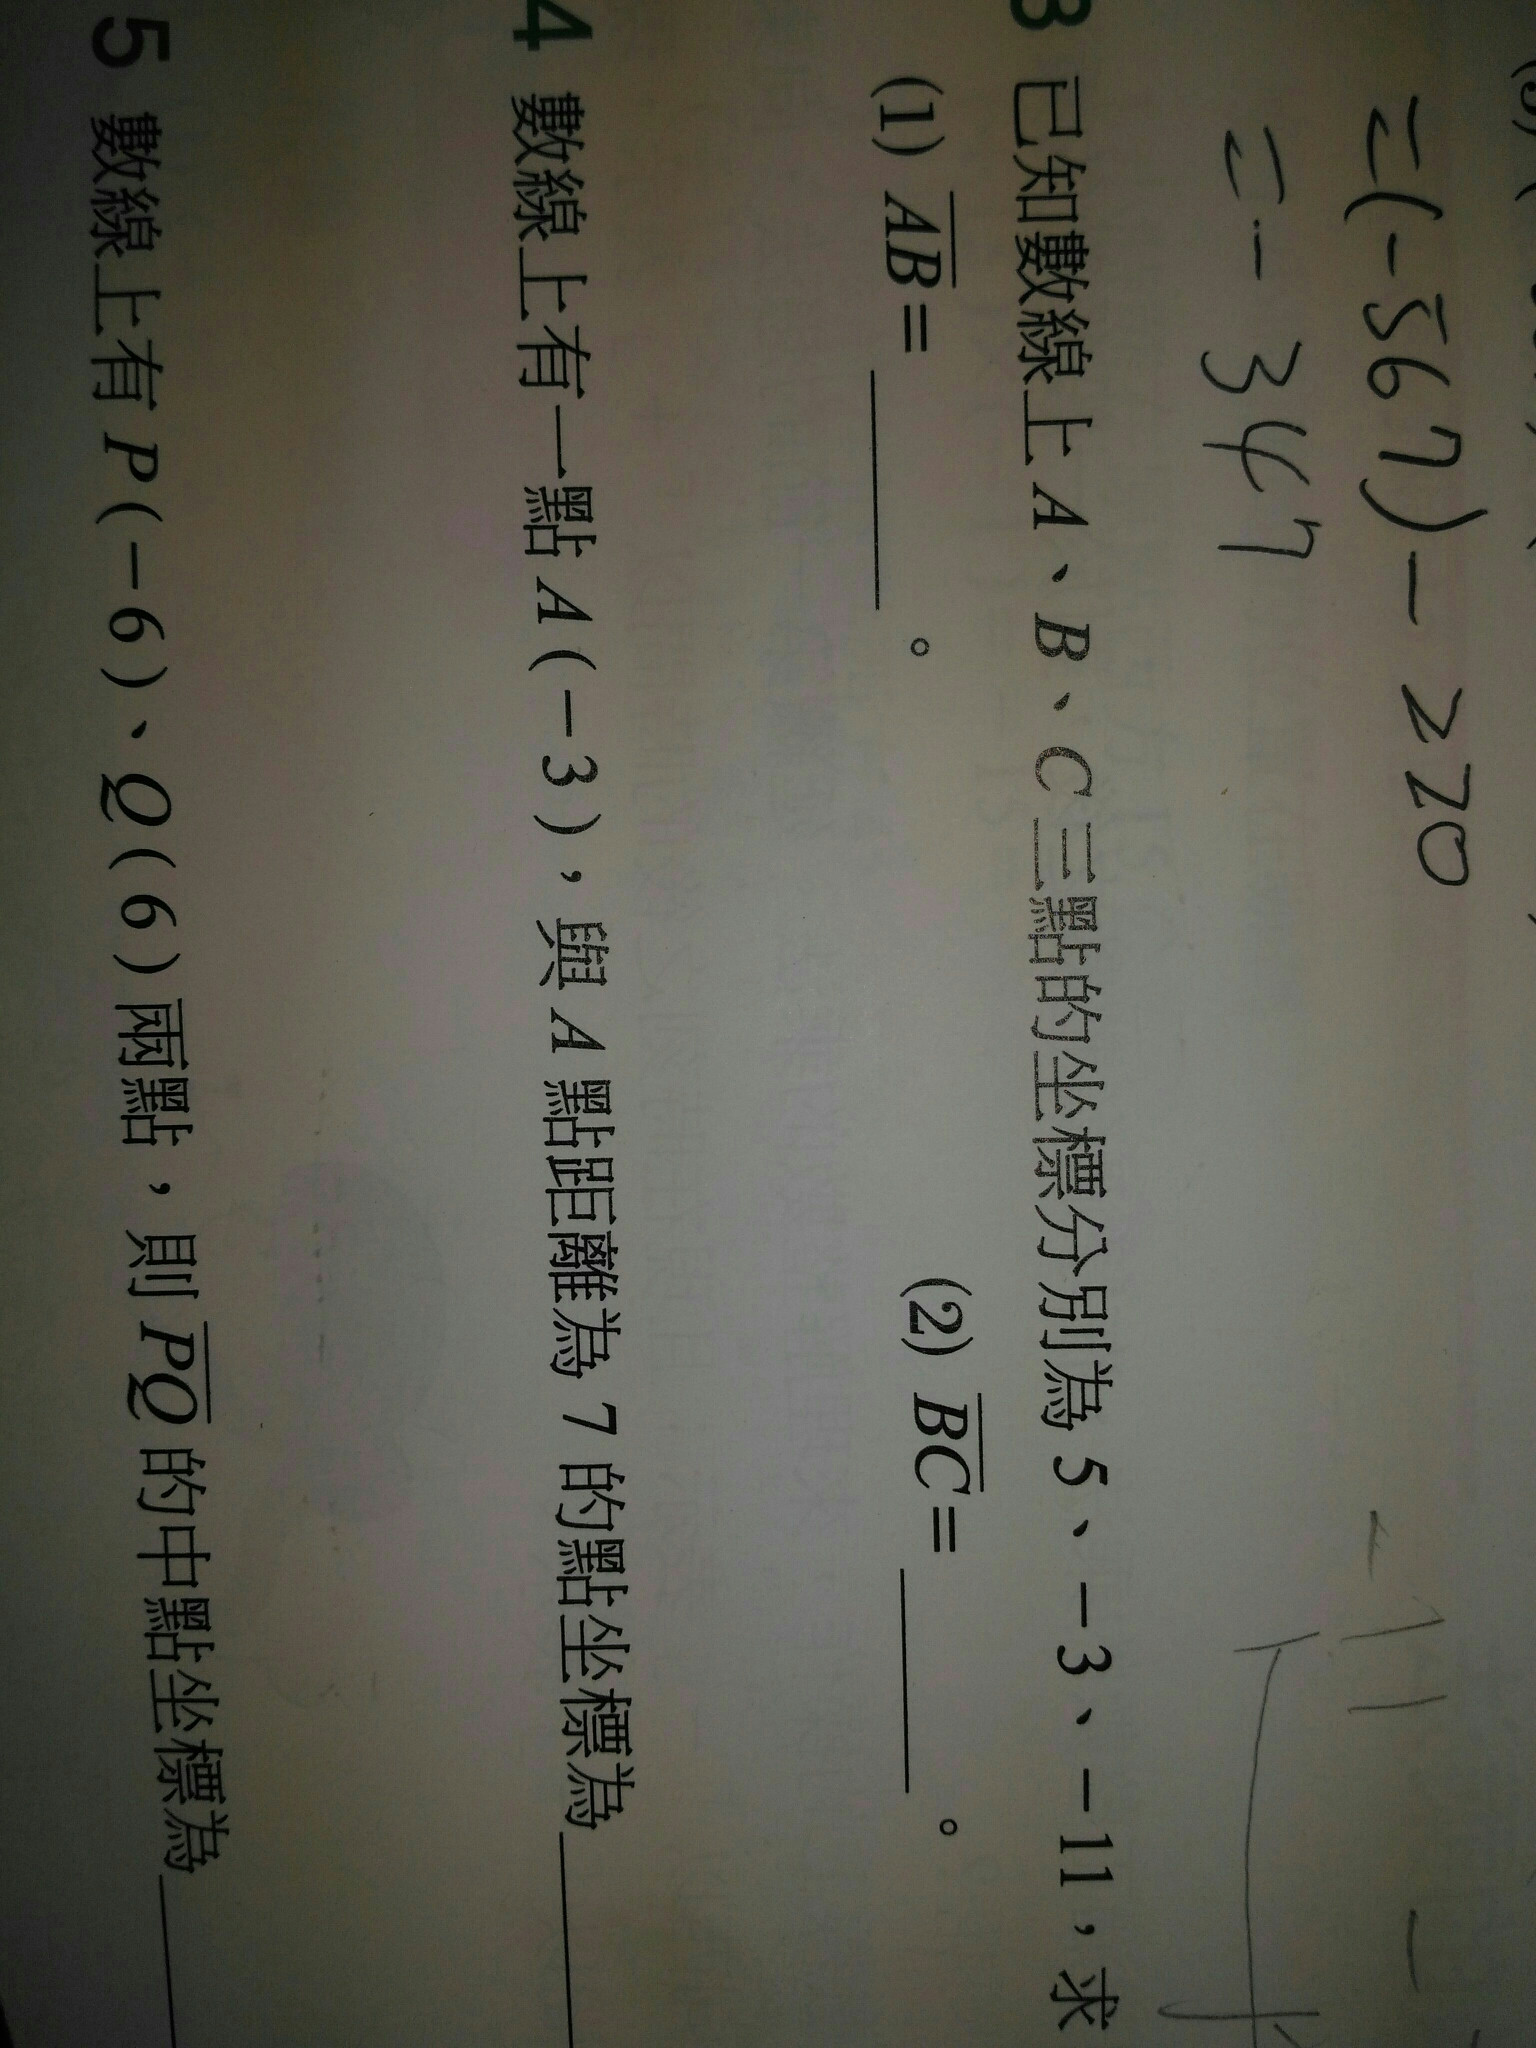 =(-567)-220
=-347
-11
3 已知數線上 A、B、C 三點的坐標分別為 5、-3、-11，求
(1) AB=______。 (2) BC=______。
4 數線上有一點 A(-3)，與 A 點距離為 7 的點坐標為
5 數線上有 P(-6)、Q(6)兩點，則 PQ 的中點坐標為